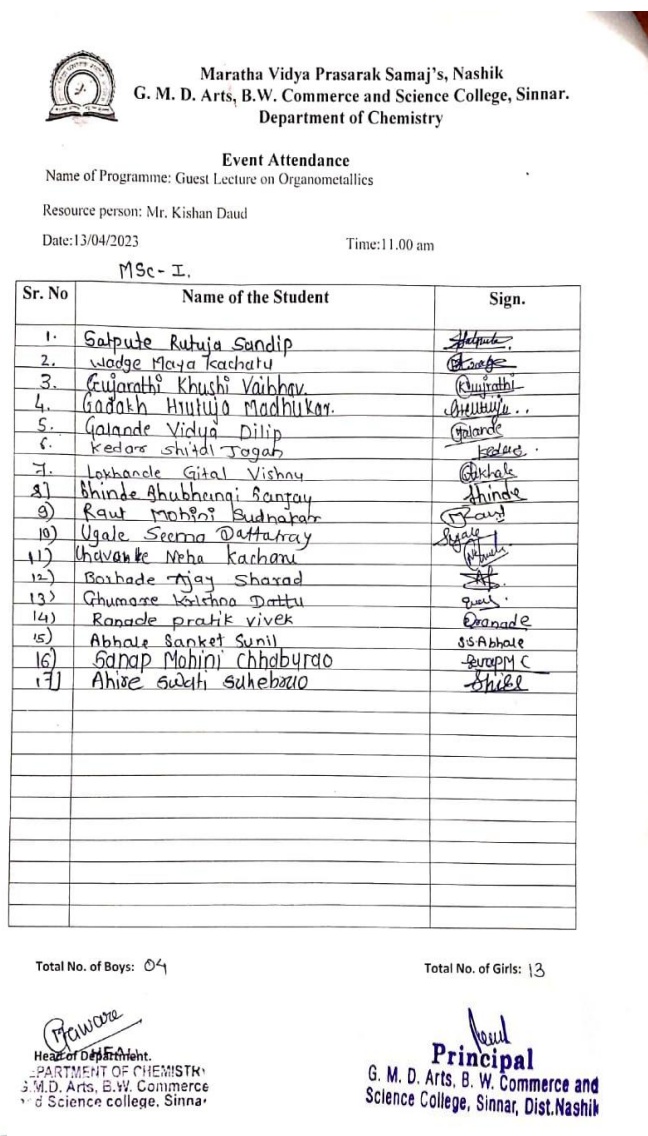 Maratha Vidya Prasarak Samaj's, Nashik
G. M. D. Arts, B.W. Commerce and Science College, Sinnar.
Department of Chemistry
Event Attendance
Name of Programme: Guest Lecture on Organometallics
Resource person: Mr. Kishan Daud
Date:13/04/2023 Time:11.00 am
MSc- I.
Sr. No Name of the Student Sign.
1. Satpute Rutuja Sandip
2. Wadge Maya Kacharu
3. Gujarathi Khushi Vaibhav. Gujrathi
4. Gadakh Hrutuja Madhukar.
5. Galande Vidya Dilip Galande
6. Kedar Shital Jagan Kedar.
7. Lokhande Gital Vishnu
8] Shinde Shubhangi Sanjay Shinde
9) Raut Mohini Sudhakar Raut
10) Ugale Seema Dattatray
11) Chavanke Neha Kacharu
12) Borhade Ajay Sharad
13) Ghumare Krishna Dattu
14) Ranade pratik vivek Ranade
15) Abhale Sanket Sunil S.S.Abhale
16) Sanap Mohini Chhaburao SanapMC
17] Ahire Swati Sahebrao Ahire
Total No. of Boys: 04 Total No. of Girls: 13
Head of Department.
DEPARTMENT OF CHEMISTRY
G.M.D. Arts, B.W. Commerce
and Science college, Sinnar
Principal
G. M. D. Arts, B. W. Commerce and
Science College, Sinnar, Dist.Nashik